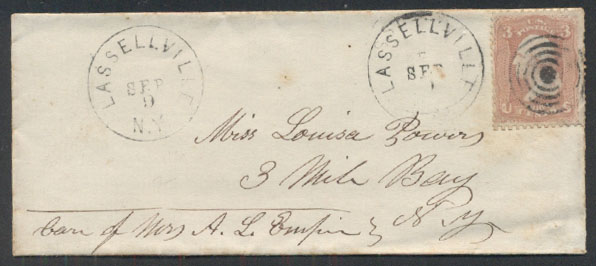 LASSELLVILLE
SEP
9
N.Y.
LASSELLVILLE
SEP
3 3
Miss Louisa Powers
3 Mile Bay
N. Y.
Care of Mrs A. L. Empie